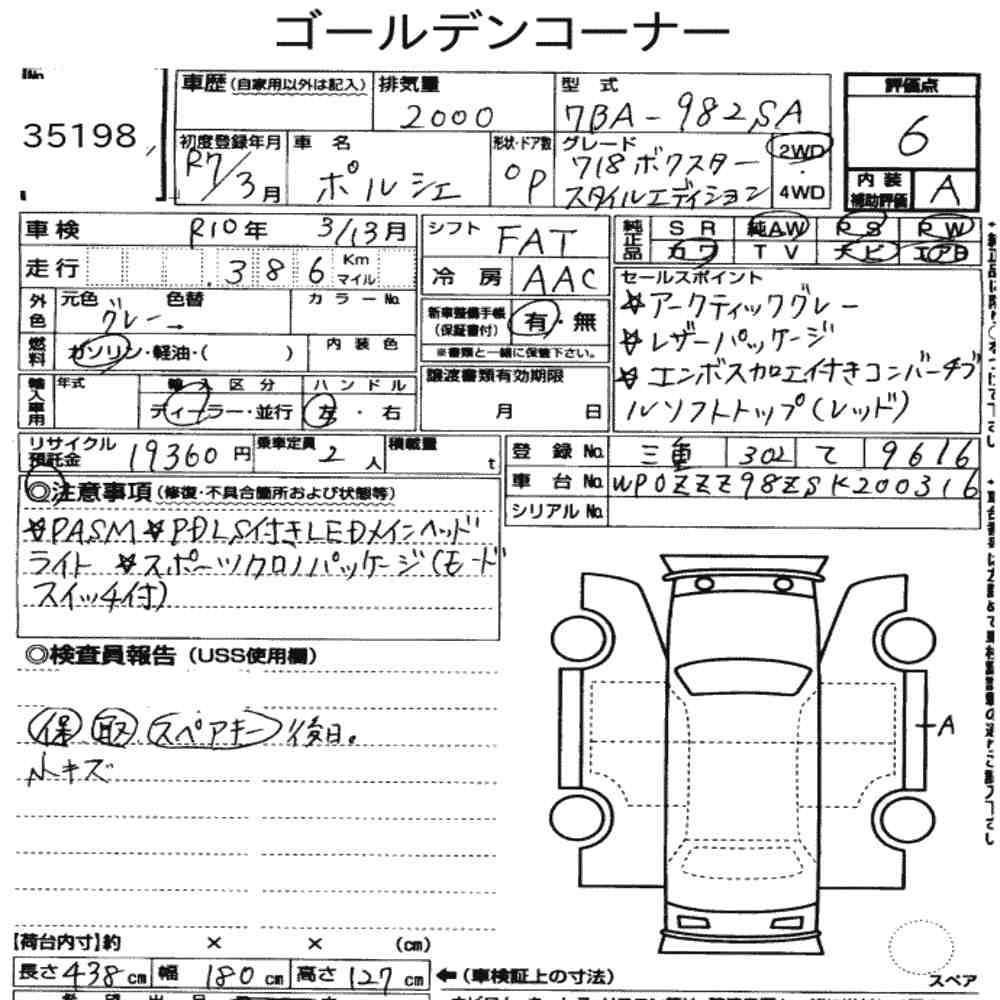 ゴールデンコーナー
No
35198
車歴 (自家用以外は記入)
排気量
2000
型式
7BA-982SA
評価点
6
内装
補助評価
A
初度登録年月
R7/3月
車名
ポルシェ
形状・ドア数
OP
グレード
718ボクスター
スタイルエディション
2WD
・
4WD
車検
R10年 3/13月
シフト
FAT
純正品
SR 純AW PS PW
カワ TV ナビ エアB
走行
386
Km
マイル
冷房
AAC
セールスポイント
☆アークティックグレー
☆レザーパッケージ
☆エンボス加工付きコンバーチブ
ルソフトトップ(レッド)
外色
元色
グレー→
色替
カラーNo.
新車整備手帳
(保証書付)
有・無
※書類と一緒に保管下さい。
燃料
ガソリン・軽油・( )
内装色
輸入車用
年式
輸入区分
ディーラー・並行
ハンドル
左・右
譲渡書類有効期限
月 日
リサイクル
預託金
19360円
乗車定員
2人
積載量
t
登録No.
三重 302 て 9616
車台No.
WP0ZZZ98ZSK200316
シリアルNo.
◎注意事項 (修復・不具合箇所および状態等)
☆PASM☆PDLS付きLEDメインヘッド
ライト ☆スポーツクロノパッケージ(モード
スイッチ付)
◎検査員報告 (USS使用欄)
保 取 スペアキー 後日。
小キズ
A
【荷台内寸】約 × × (cm)
長さ438cm 幅180cm 高さ127cm
←(車検証上の寸法)
スペア